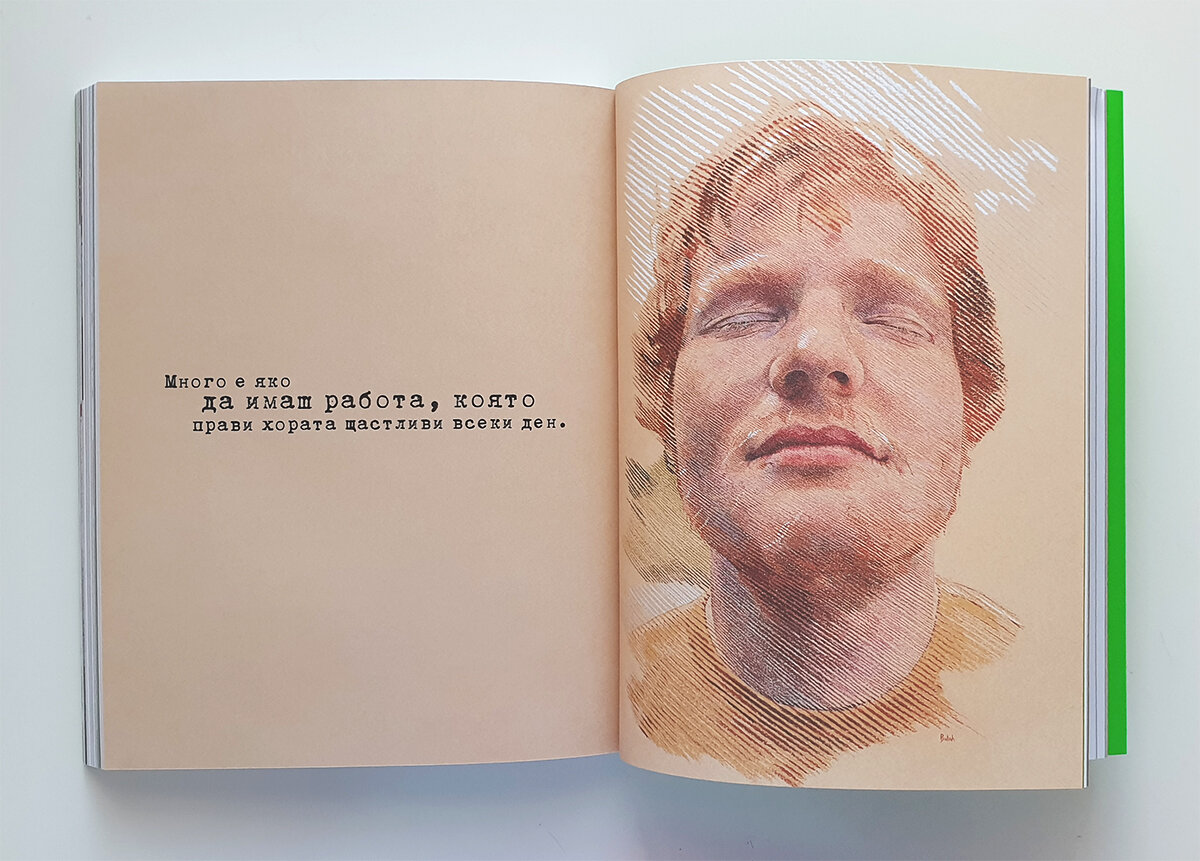 Много е яко
да имаш работа, която
прави хората щастливи всеки ден.